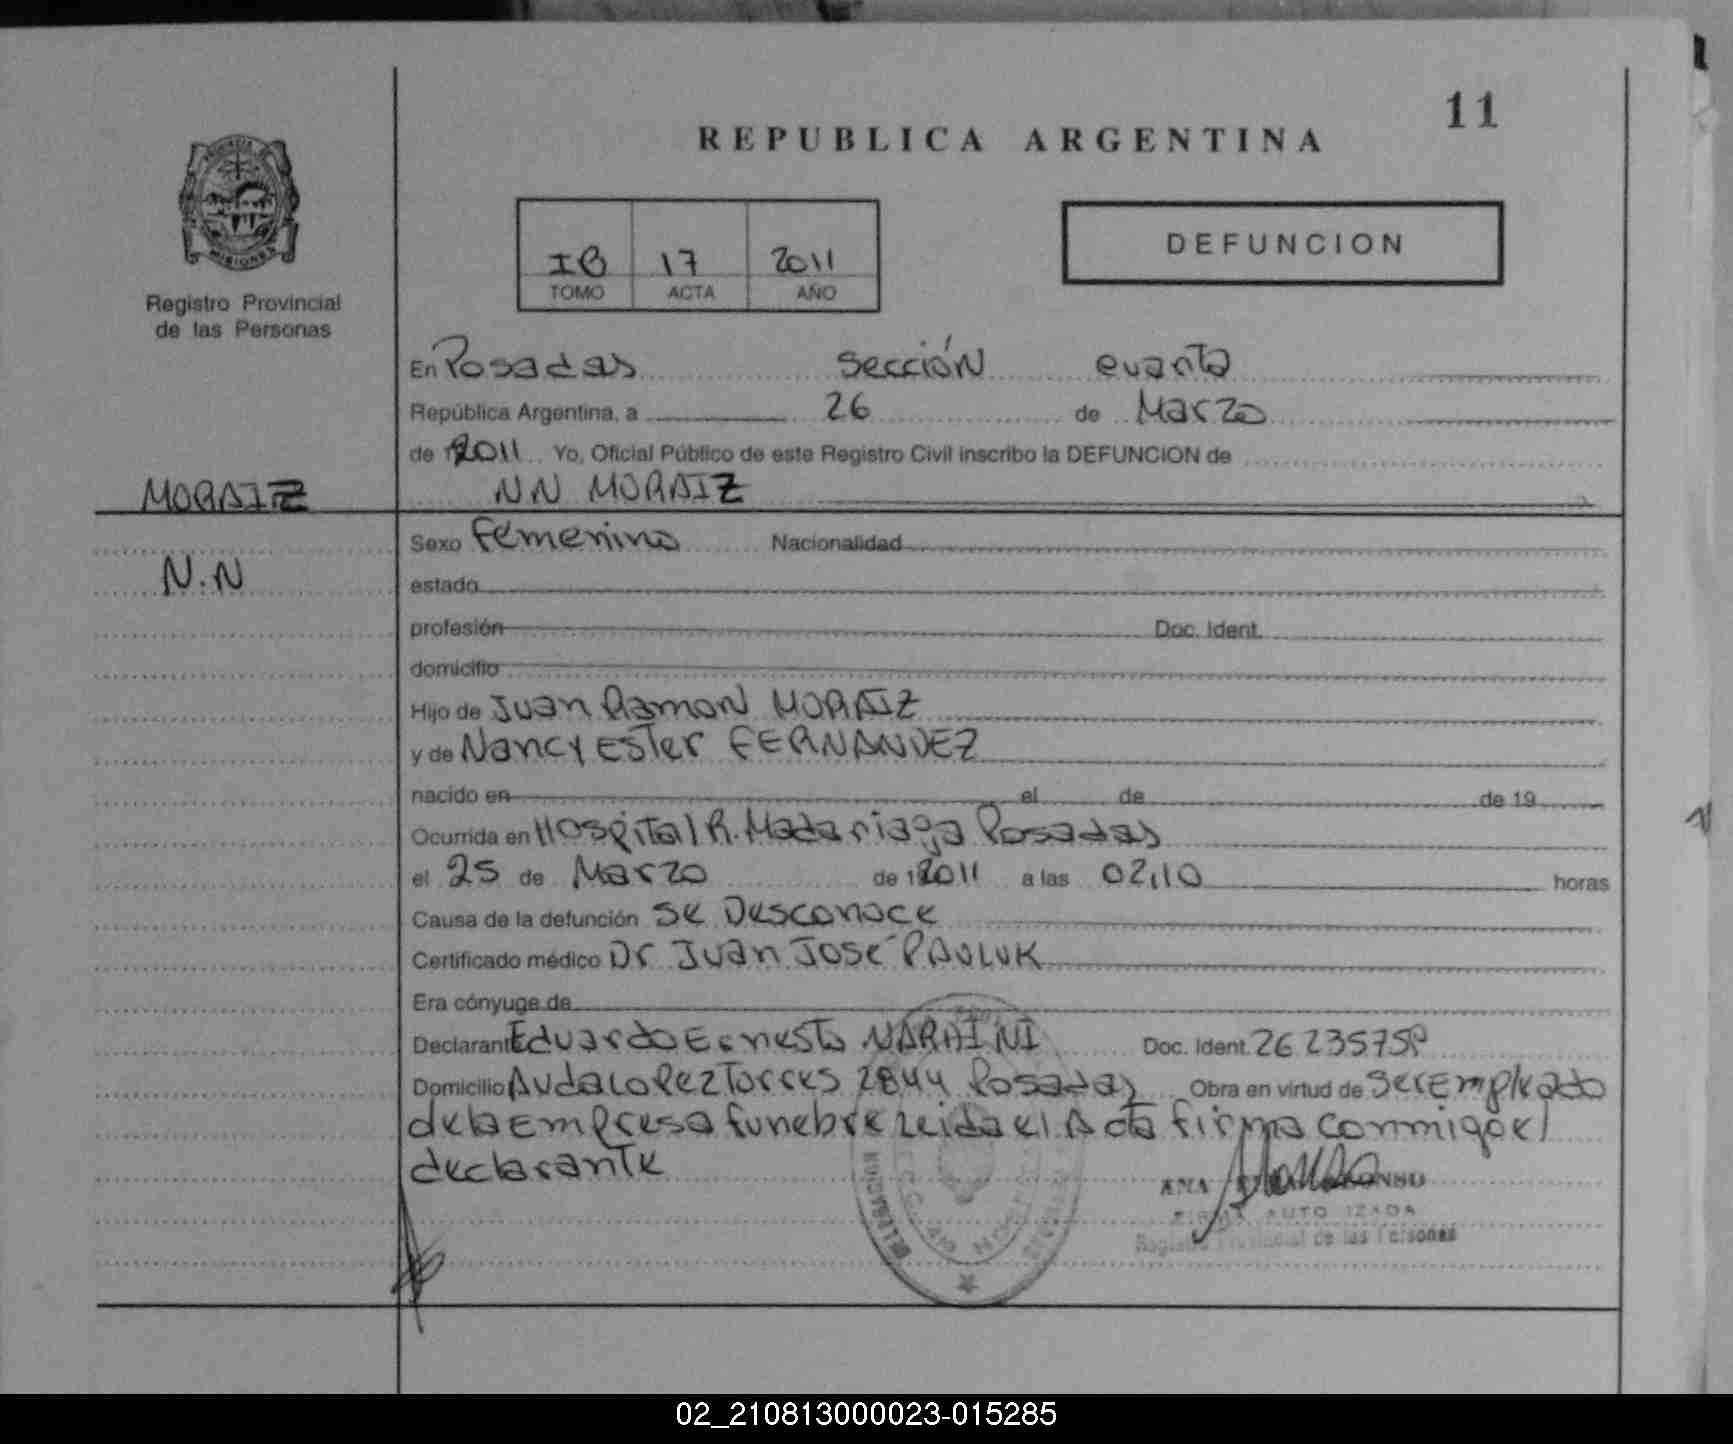 11
REPUBLICA ARGENTINA
MISIONES
Registro Provincial
de las Personas
IB 17 2011
TOMO ACTA AÑO
DEFUNCION
En Posadas sección cuarta
República Argentina, a 26 de Marzo
de 2011 Yo, Oficial Público de este Registro Civil inscribo la DEFUNCION de
MORAIZ NN MORAIZ
Sexo Femenino Nacionalidad
N.N
estado
profesión Doc. Ident.
domicilio
Hijo de Juan Ramon MORAIZ
y de Nancy Ester FERNANDEZ
nacido en el de de 19
Ocurrida en Hospital R. Madariaga Posadas
el 25 de Marzo de 2011 a las 02,10 horas
Causa de la defunción se Desconoce
Certificado médico Dr Juan José PAULUK
Era cónyuge de
Declarante Eduardo Ernesto Doc. Ident.
Domicilio Avda Lopez Torres 2844 Posadas Obra en virtud de ser Empleado
de la Empresa funebre Leida el Acta firma conmigo el
declarante
ANA
Registro Provincial de las Personas
02_210813000023-015285